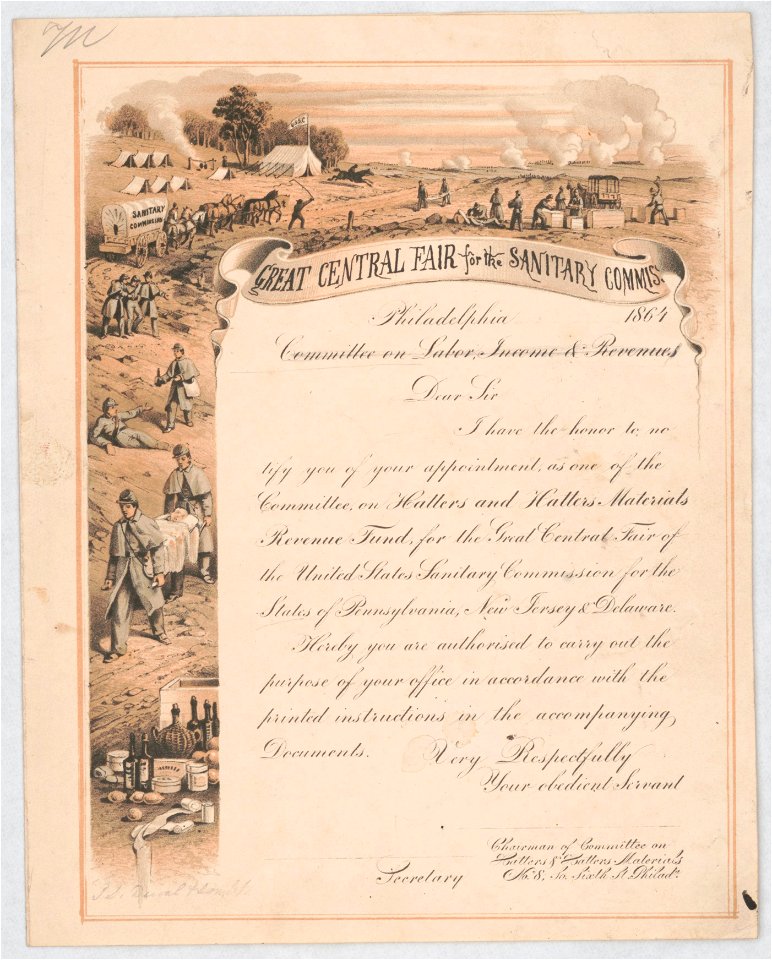 SANITARY
COMMISSION
GREAT CENTRAL FAIR for the SANITARY COMMIS.
Philadelphia 1864
Committee on Labor, Income & Revenues
Dear Sir
I have the honor to, no
tify you of your appointment, as one of the
Committee, on Hatters and Hatters Materials
Revenue Fund, for the Great Central Fair of
the United States Sanitary Commission for the
States of Pennsylvania, New Jersey & Delaware.
Hereby you are authorised to carry out the
purpose of your office in accordance with the
printed instructions in the accompanying
Documents. Very Respectfully
Your obedient Servant
Chairman of Committee on
Hatters & Hatters Materials
Secretary No. 8, So. Sixth St. Philada.